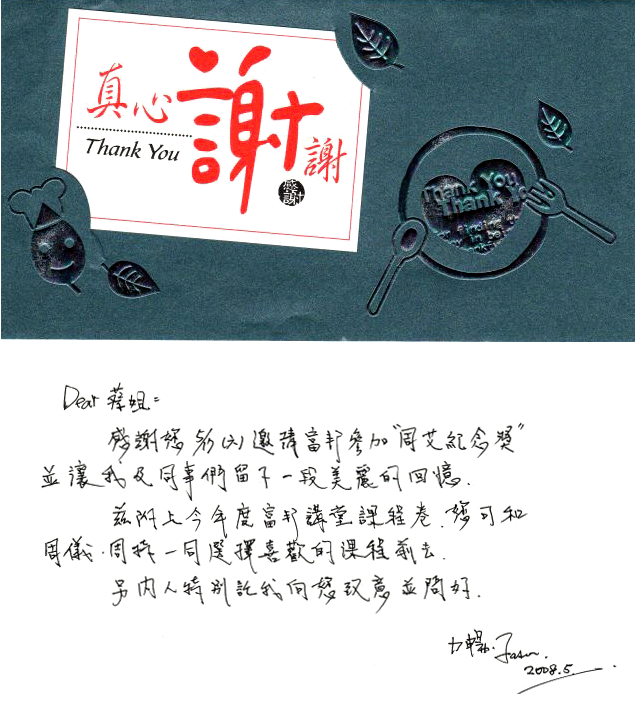 真心
謝
謝
Thank You
感謝
Thank You
Thank
Dear 蔡姐:
感謝您 5/5(六)邀請富邦參加"周艾紀念獎"
並讓我及同事們留下一段美麗的回憶.
茲附上今年度富邦講堂課程卷.您可和
周儀.周 一同選擇喜歡的課程前去.
另內人特別託我向您致意並問好.
Jason.
2008.5.